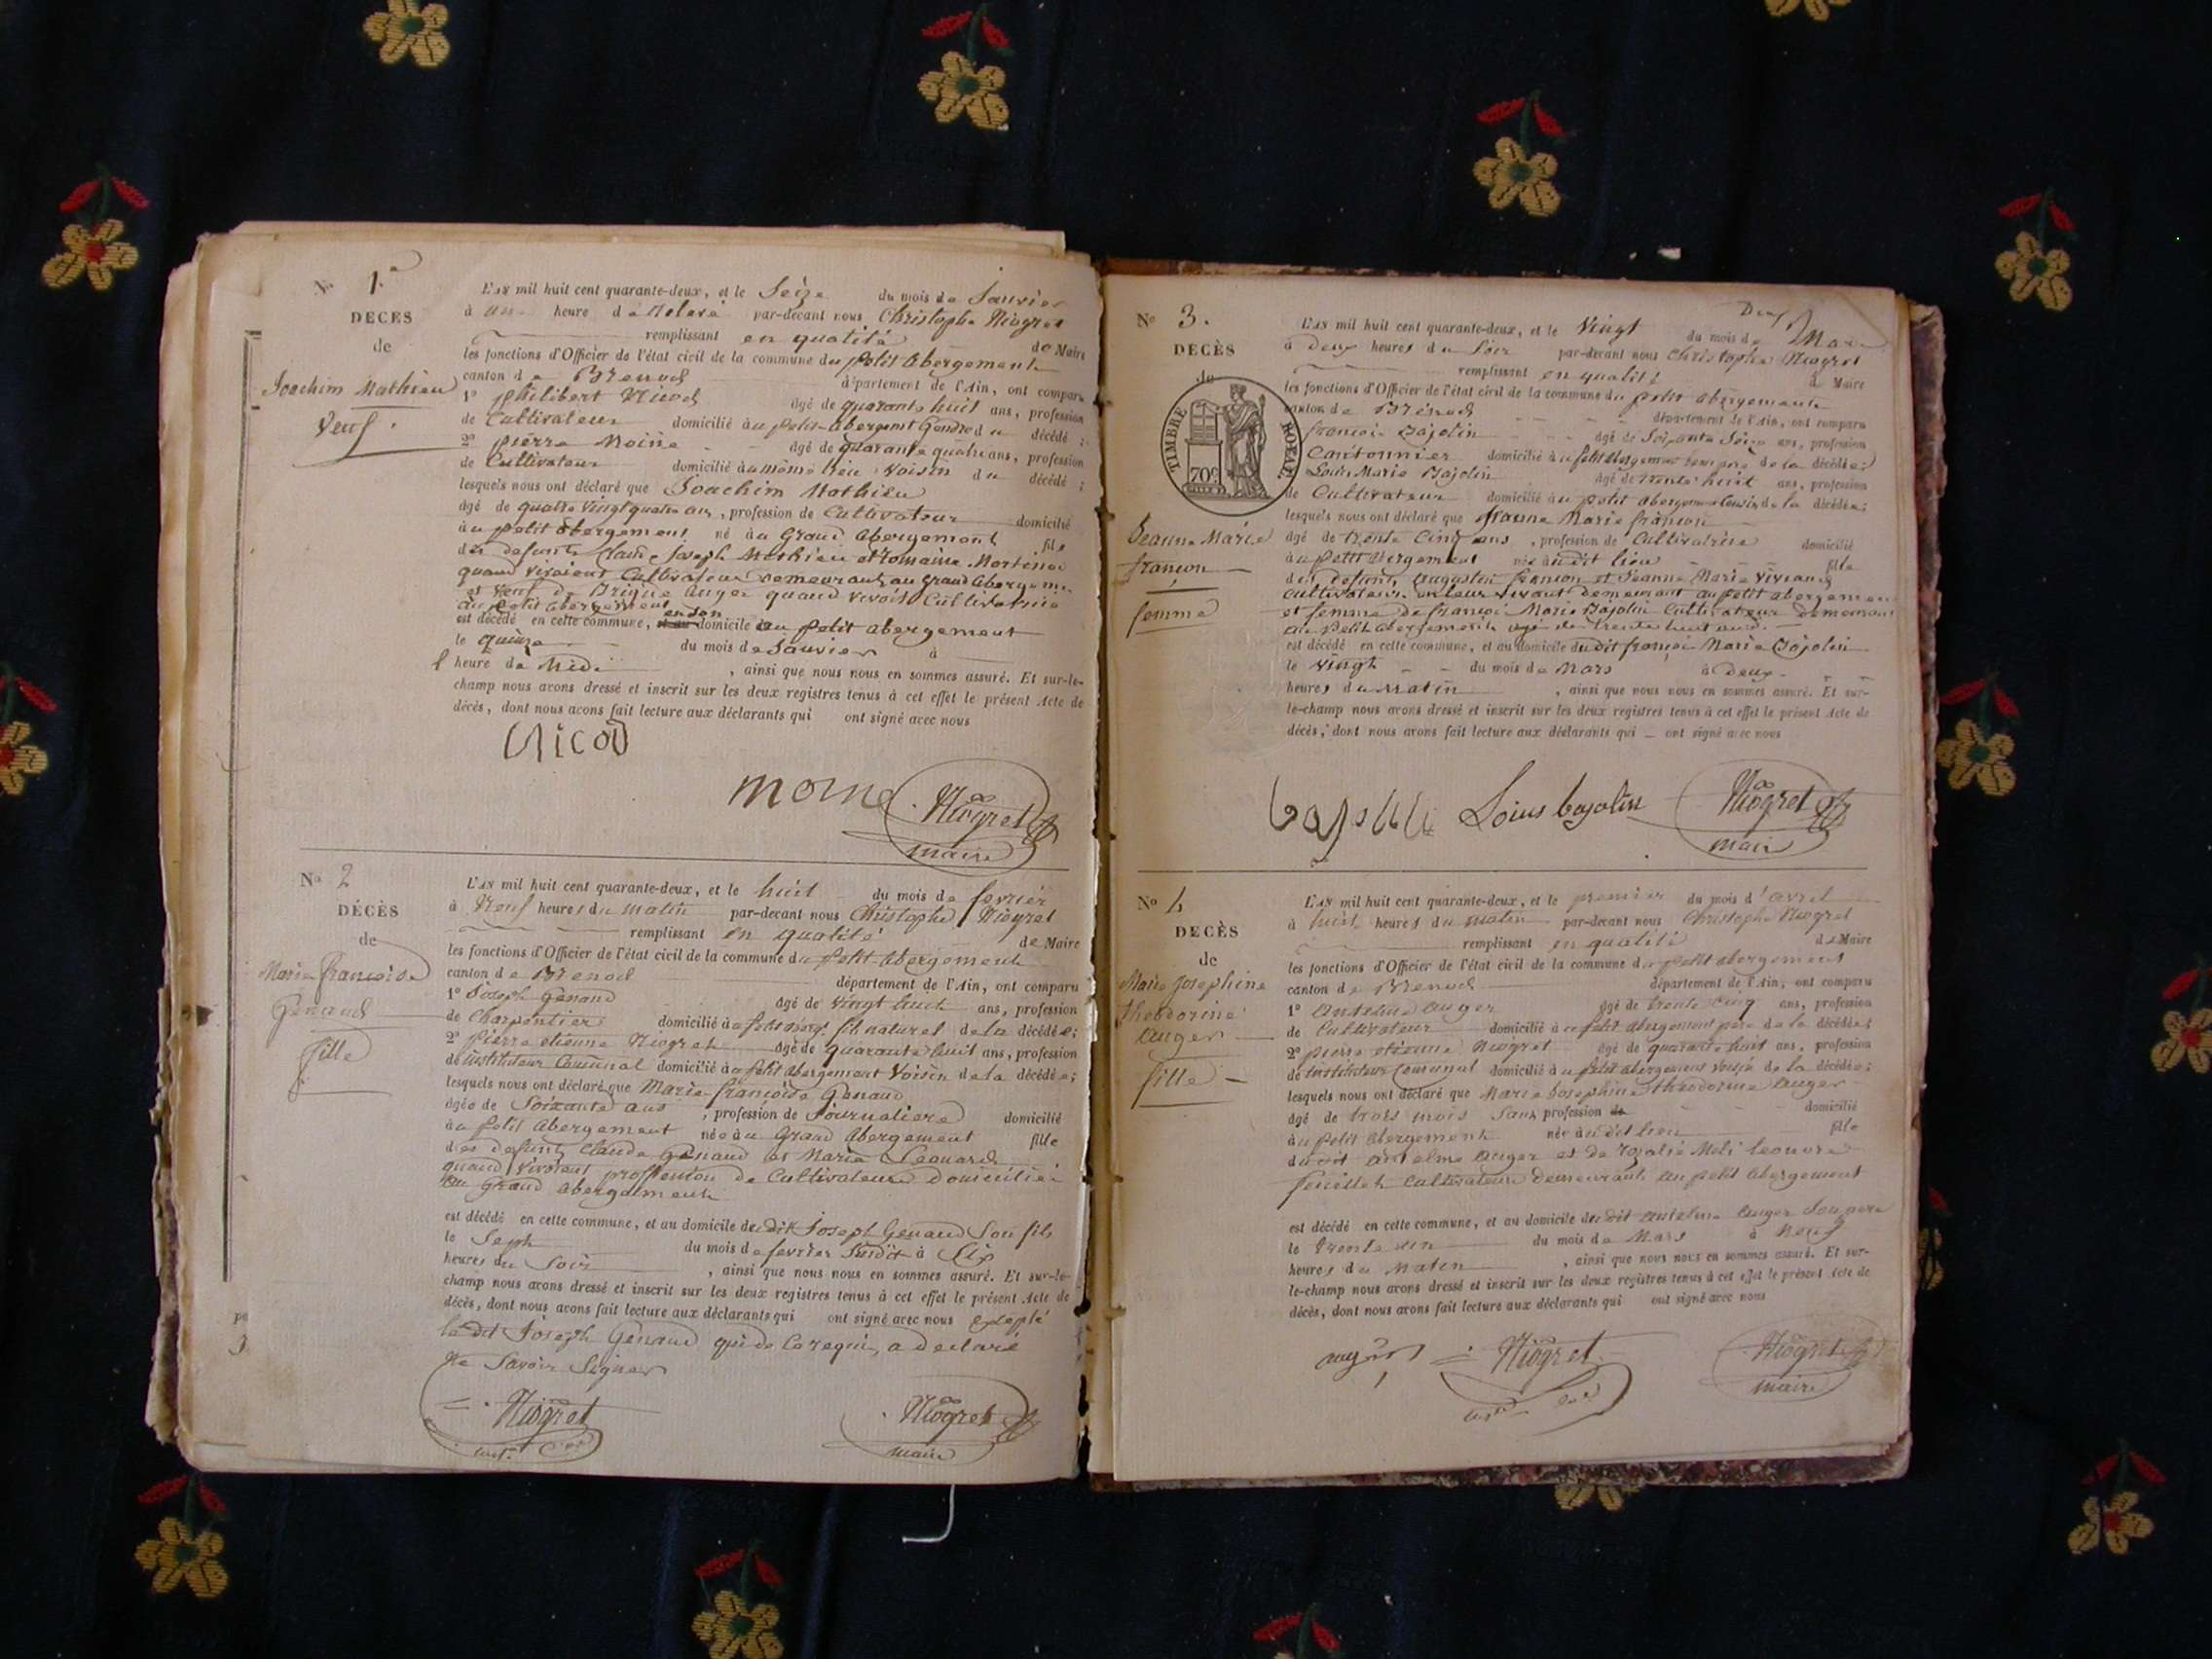 No 1.
DECES
de
Joachim Mathieu
Veuf.
L'AN mil huit cent quarante-deux, et le Seize du mois de Janvier
à une heure de par-devant nous Christophe Niogret
remplissant en qualité de Maire
les fonctions d'Officier de l'état civil de la commune du petit abergement
canton de Brenod département de l'Ain, ont comparu
1º philibert Nicod agé de quarante huit ans, profession
de Cultivateur domicilié au petit-abergement Gendre du décédé ;
2º pierre Moine agé de quarante quatre ans, profession
de Cultivateur domicilié au même lieu voisin du décédé ;
lesquels nous ont déclaré que Joachim Mathieu
âgé de quatre vingt quatre ans, profession de Cultivateur domicilié
au petit abergement né au Grand abergement fils
des defunts Claude Joseph Mathieu et Romaine
quand vivaient Cultivateurs demeurant au grand abergement
et veuf de Auger quand vivoit Cultivatrice
au petit abergement
est décédé en cette commune, en son domicile au petit abergement
le quinze du mois de Janvier à
heure de Midi , ainsi que nous nous en sommes assuré. Et sur-le-
champ nous avons dressé et inscrit sur les deux registres tenus à cet effet le présent Acte de
décès, dont nous avons fait lecture aux déclarants qui ont signé avec nous
Nicod
moine Niogret
maire
No 2
DÉCÈS
de
Marie françoise
Genaud
fille
L'AN mil huit cent quarante-deux, et le huit du mois de fevrier
à Neuf heures du matin par-devant nous Christophe Niogret
remplissant en qualité de Maire
les fonctions d'Officier de l'état civil de la commune du petit-abergement
canton de Brenod département de l'Ain, ont comparu
1º Joseph Genaud agé de vingt huit ans, profession
de Charpentier domicilié au fils naturel de la décédée;
2º Pierre etienne Niogret agé de quarante huit ans, profession
de instituteur Communal domicilié au petit abergement Voisin de la décédée;
lesquels nous ont déclaré que Marie françoise Genaud
agée de Soixante ans , profession de Journaliere domicilié
au petit abergement née au Grand abergement fille
des defunts Claude Genaud et Marie Leonard
quand vivoient proffession de Cultivateurs domiciliés
au Grand abergement
est décédé en cette commune, et au domicile du dit Joseph Genaud Son fils
le Sept du mois de fevrier Susdit à Six
heures du Soir , ainsi que nous nous en sommes assuré. Et sur-le-
champ nous avons dressé et inscrit sur les deux registres tenus à cet effet le présent Acte de
décès, dont nous avons fait lecture aux déclarants qui ont signé avec nous excepté
le dit Joseph Genaud qui de ce requis, a declaré
Ne Savoir Signer
Niogret Niogret
maire
Deux
No 3.
DECÈS
de
TIMBRE ROYAL
70c
Jeanne Marie
françon
femme
L'AN mil huit cent quarante-deux, et le Vingt du mois de Mars
à Deux heures du Soir par-devant nous Christophe Niogret
remplissant en qualité de Maire
les fonctions d'Officier de l'état civil de la commune du petit abergement
canton de Brénod département de l'Ain, ont comparu
françois Bajolin agé de Soixante Seize ans, profession
Cantonnier domicilié au petit abergement beau pere de la décédée;
Louis Marie Bajolin agé de trente huit ans, profession
de Cultivateur domicilié au petit abergement Cousin de la décédée;
lesquels nous ont déclaré que Jeanne Marie françon
âgé de trente Cinq ans , profession de Cultivatrice domicilié
au petit abergement née audit lieu fille
des defunts augustin françon et Jeanne Marie
Cultivateurs en leur vivant demeurant au petit abergement
et femme de françois Marie Bajolin Cultivateur demeurant
au petit abergement agé de trente huit ans.
est décédé en cette commune, et au domicile dudit françois Marie Bajolin
le vingt du mois de Mars à Deux
heures du Matin , ainsi que nous nous en sommes assuré. Et sur-
le-champ nous avons dressé et inscrit sur les deux registres tenus à cet effet le présent Acte de
décès; dont nous avons fait lecture aux déclarants qui ont signé avec nous
Louis bajolin Niogret
maire
No 4
DECÈS
de
Marie Josephine
theodorine
auger
fille
L'AN mil huit cent quarante-deux, et le premier du mois d'avril
à huit heures du matin par-devant nous Christophe Niogret
remplissant en qualité de Maire
les fonctions d'Officier de l'état civil de la commune du petit abergement
canton de Brenod département de l'Ain, ont comparu
1º antelme auger agé de trente cinq ans, profession
de Cultivateur domicilié au petit abergement pere de la décédée;
2º pierre etienne Niogret agé de quarante huit ans, profession
de instituteur Communal domicilié au petit abergement de la décédée;
lesquels nous ont déclaré que Marie Josephine theodorine auger
âgé de trois mois Sans profession de domicilié
au petit abergement née audit lieu fille
dudit antelme auger et de
Cultivateurs demeurants au petit abergement
est décédé en cette commune, et au domicile du dit antelme auger Son pere
le trente un du mois de Mars à Neuf
heures du Matin , ainsi que nous nous en sommes assuré. Et sur-
le-champ nous avons dressé et inscrit sur les deux registres tenus à cet effet le présent Acte de
décès, dont nous avons fait lecture aux déclarants qui ont signé avec nous
auger Niogret Niogret
maire